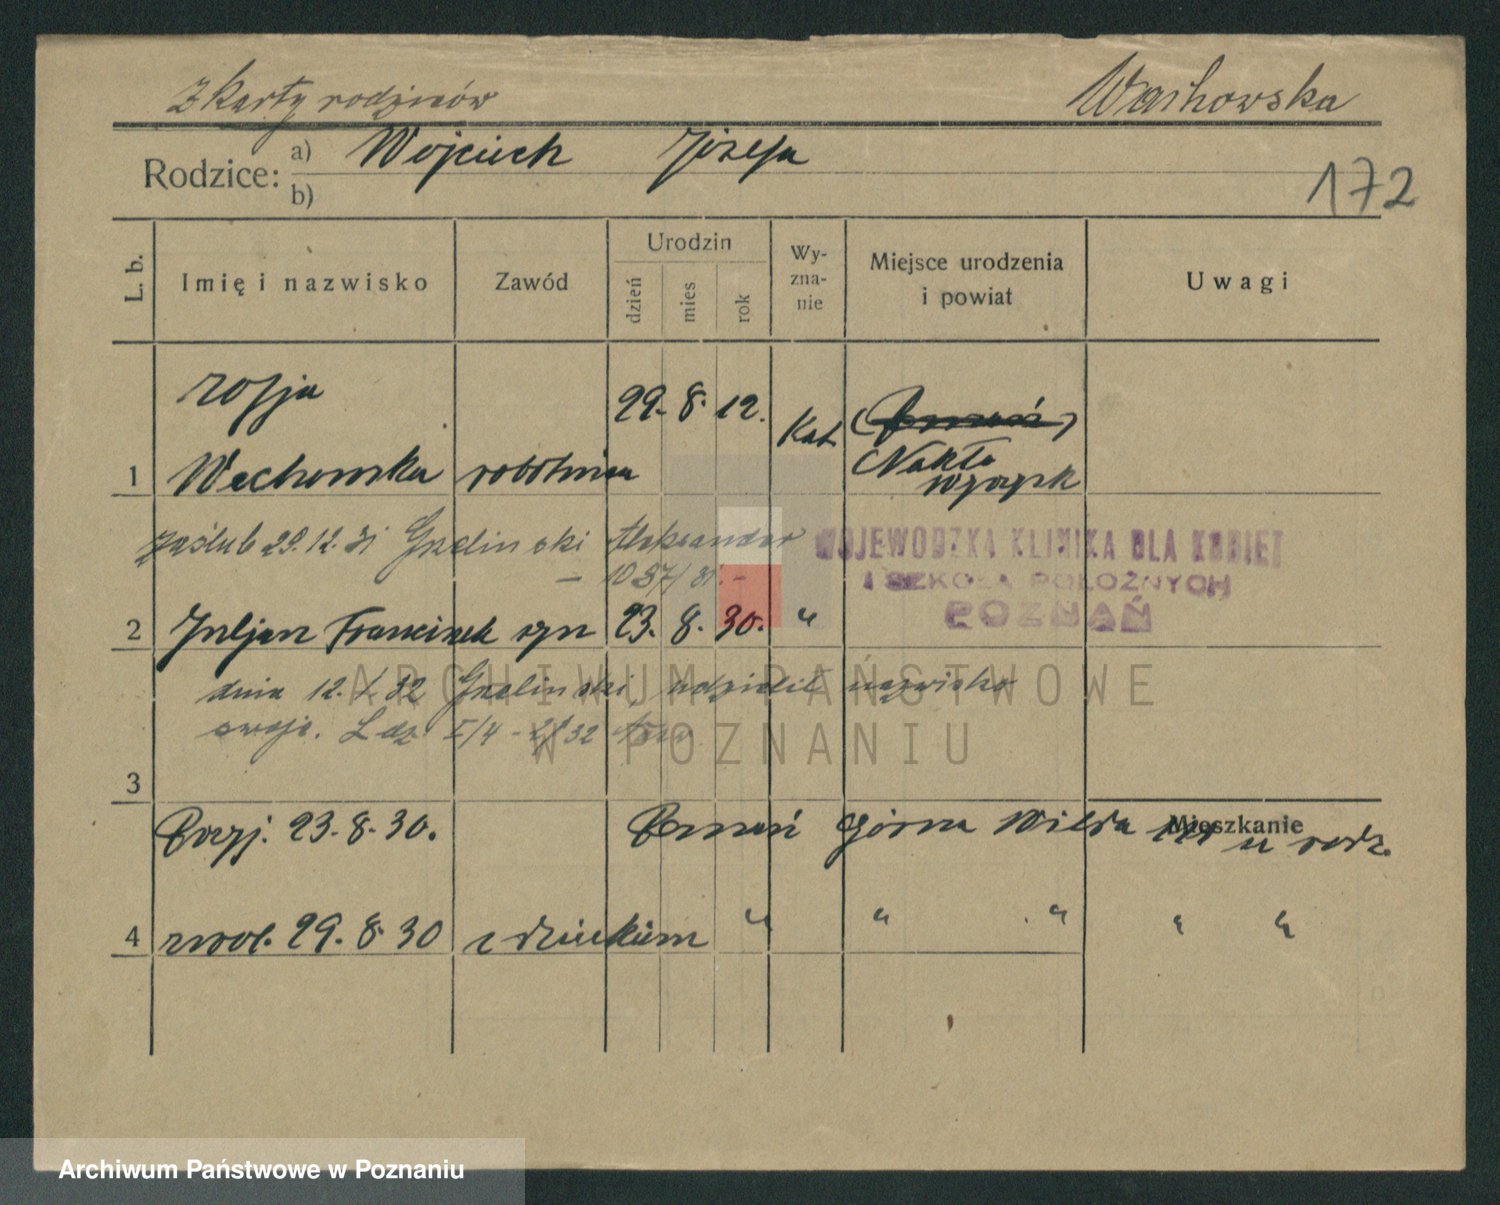 z karty rodziców Wachowska
Rodzice: a) Wojciech Józefa
b)
172
L. b. Imię i nazwisko Zawód Urodzin dzień mies rok Wy-zna-nie Miejsce urodzenia i powiat Uwagi
Zofja 29. 8. 12. Kat.
1 Wachowska robotnica Nakło Wyrzysk
zaślub 29.12.31 Grelinski Aleksander
– 1037/31. –
WOJEWÓDZKA KLINIKA DLA KOBIET
I SZKOŁA POŁOŻNYCH
POZNAŃ
2 Juljan Franciszek syn 23. 8. 30. "
dnia 12. 32 Grelinski, udzielił nazwisko
swoje. L dz. I/4 - 32
3
Mieszkanie
Przyj. 23. 8. 30. Poznań Górna Wilda u rodz.
4 zwol. 29. 8. 30 z dzieckiem " " " " "
ARCHIWUM PAŃSTWOWE
W POZNANIU
Archiwum Państwowe w Poznaniu